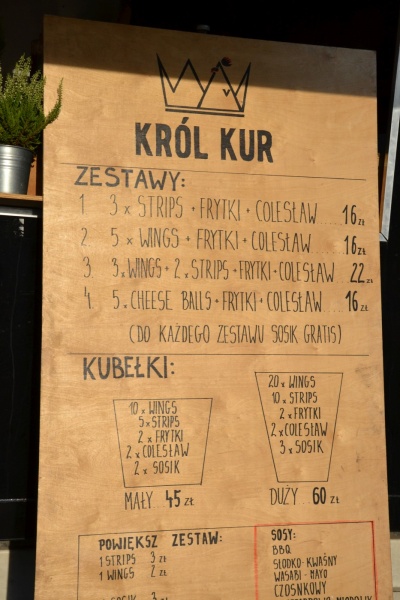 KRÓL KUR
ZESTAWY:
1 3x STRIPS + FRYTKI + COLESŁAW 16 zł
2. 5x WINGS + FRYTKI + COLESŁAW 16 zł
3 3x WINGS + 2x STRIPS + FRYTKI + COLESŁAW 22 zł
4. 5x CHEESE BALLS + FRYTKI + COLESŁAW 16 zł
(DO KAŻDEGO ZESTAWU SOSIK GRATIS)
KUBEŁKI:
10x WINGS
5x STRIPS
2x FRYTKI
2x COLESŁAW
2x SOSIK
MAŁY 45 zł
20x WINGS
10x STRIPS
2x FRYTKI
2x COLESŁAW
3x SOSIK
DUŻY. 60 zł
POWIĘKSZ ZESTAW:
1 STRIPS 3 zł
1 WINGS 2 zł
SOSIK 3 zł
SOSY:
BBQ
SŁODKO-KWAŚNY
WASABI-MAYO
CZOSNKOWY